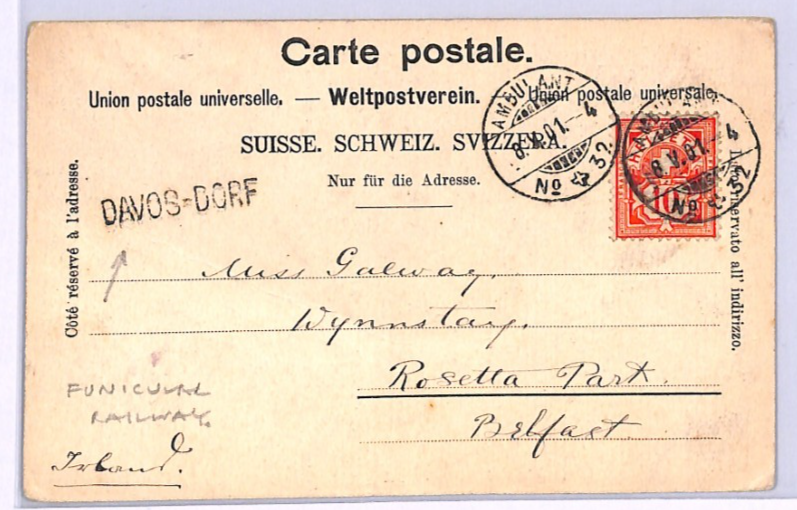 Carte postale.
Union postale universelle. — Weltpostverein. — Union postale universale.
SUISSE. SCHWEIZ. SVIZZERA.
Nur für die Adresse.
Côté réservé à l'adresse.
Lato riservato all' indirizzo.
AMBULANT
6.V.01.-4
No 32
AMBULANT
6.V.01.-4
No 32
10
DAVOS-DORF
Miss Galway.
Wynnstay.
Rosetta Park.
Belfast.
FUNICULAR
RAILWAY.
Irland.